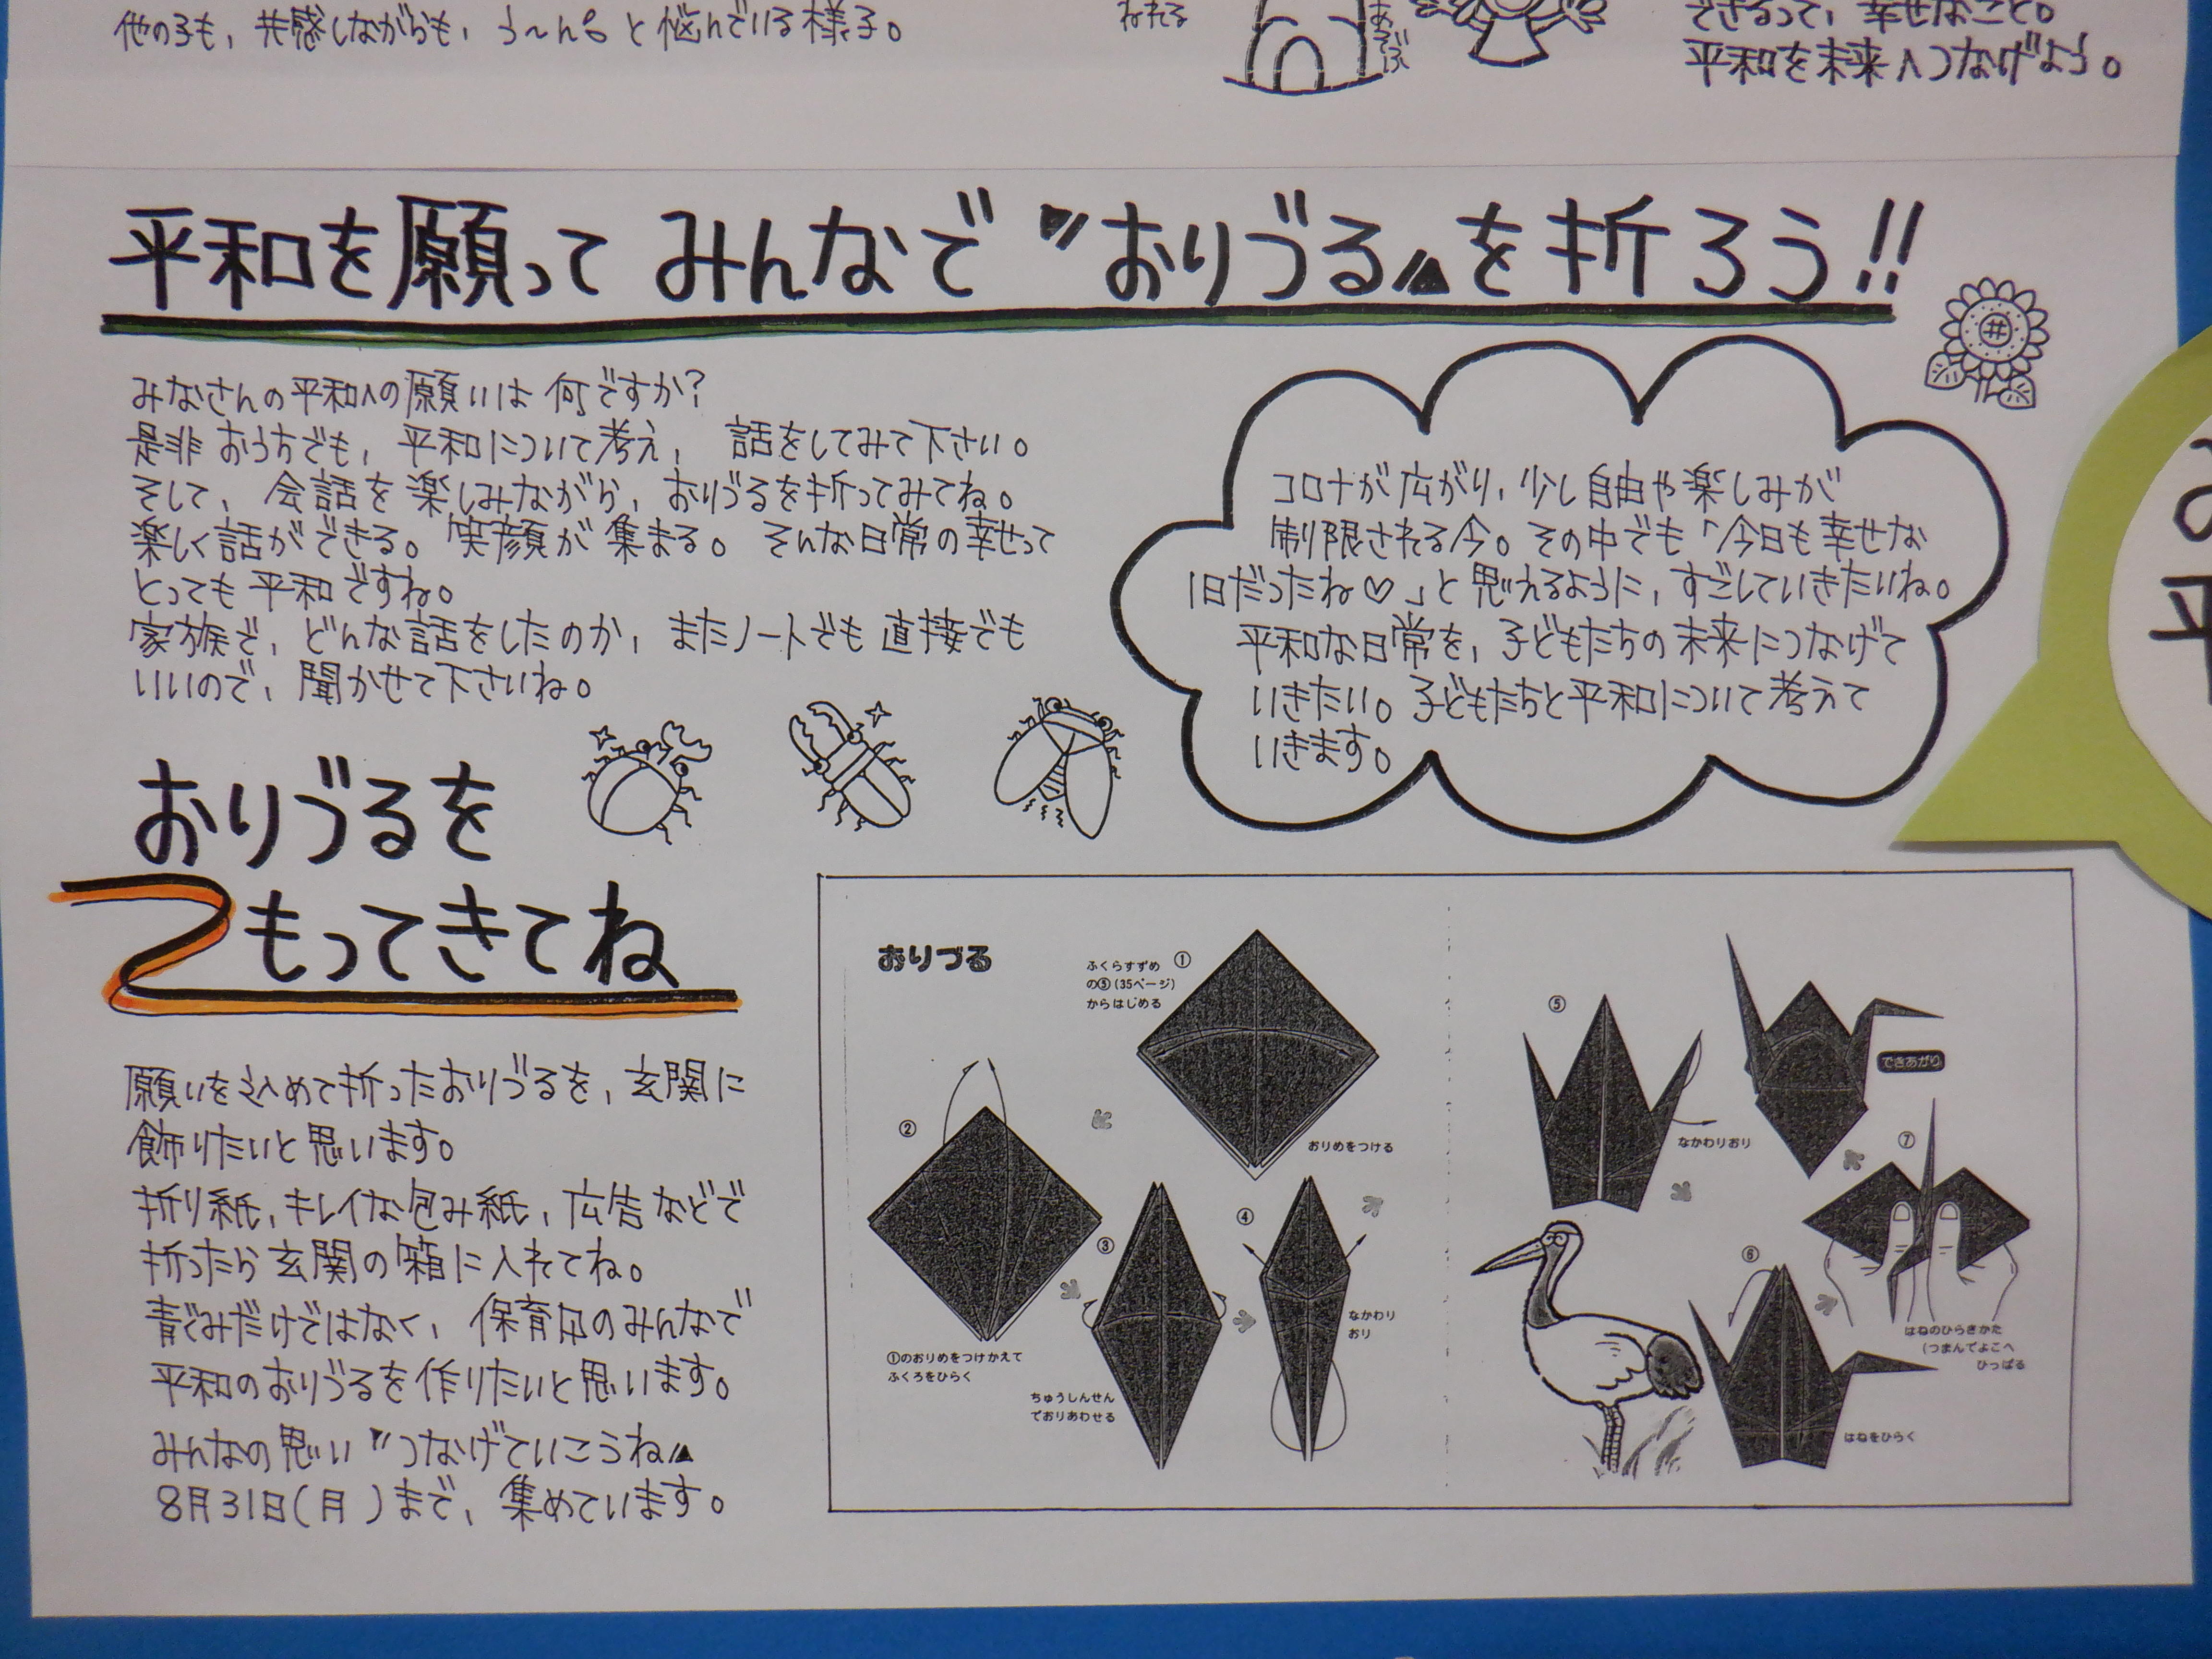 他の子も、共感しながらも、う〜ん。と悩んでいる様子。
ねれる
あそぶ
できるって、幸せなこと。
平和を未来へつなげよう。
平和を願って みんなで〝おりづる〟を折ろう!!
みなさんの平和への願いは何ですか?
是非おうちでも、平和について考え、話をしてみて下さい。
そして、会話を楽しみながら、おりづるを折ってみてね。
楽しく話ができる。笑顔が集まる。そんな日常の幸せって
とっても平和ですね。
家族で、どんな話をしたのか、またノートでも直接でも
いいので、聞かせて下さいね。
コロナが広がり、少し自由や楽しみが
制限される今。その中でも「今日も幸せな
1日だったね♡」と思えるように、すごしていきたいね。
平和な日常を、子どもたちの未来につなげて
いきたい。子どもたちと平和について考えて
いきます。
おりづるを
もってきてね
願いを込めて折ったおりづるを、玄関に
飾りたいと思います。
折り紙、キレイな包み紙、広告などで
折ったら玄関の箱に入れてね。
青ぐみだけではなく、保育園のみんなで
平和のおりづるを作りたいと思います。
みんなの思い〝つなげていこうね〟
8月31日(月)まで、集めています。
おりづる
ふくらすずめ
の⑤(35ページ)
からはじめる
①
おりめをつける
②
①のおりめをつけかえて
ふくろをひらく
③
ちゅうしんせん
でおりあわせる
④
なかわり
おり
⑤
なかわりおり
⑥
はねをひらく
⑦
はねのひらきかた
(つまんでよこへ
ひっぱる
できあがり
平